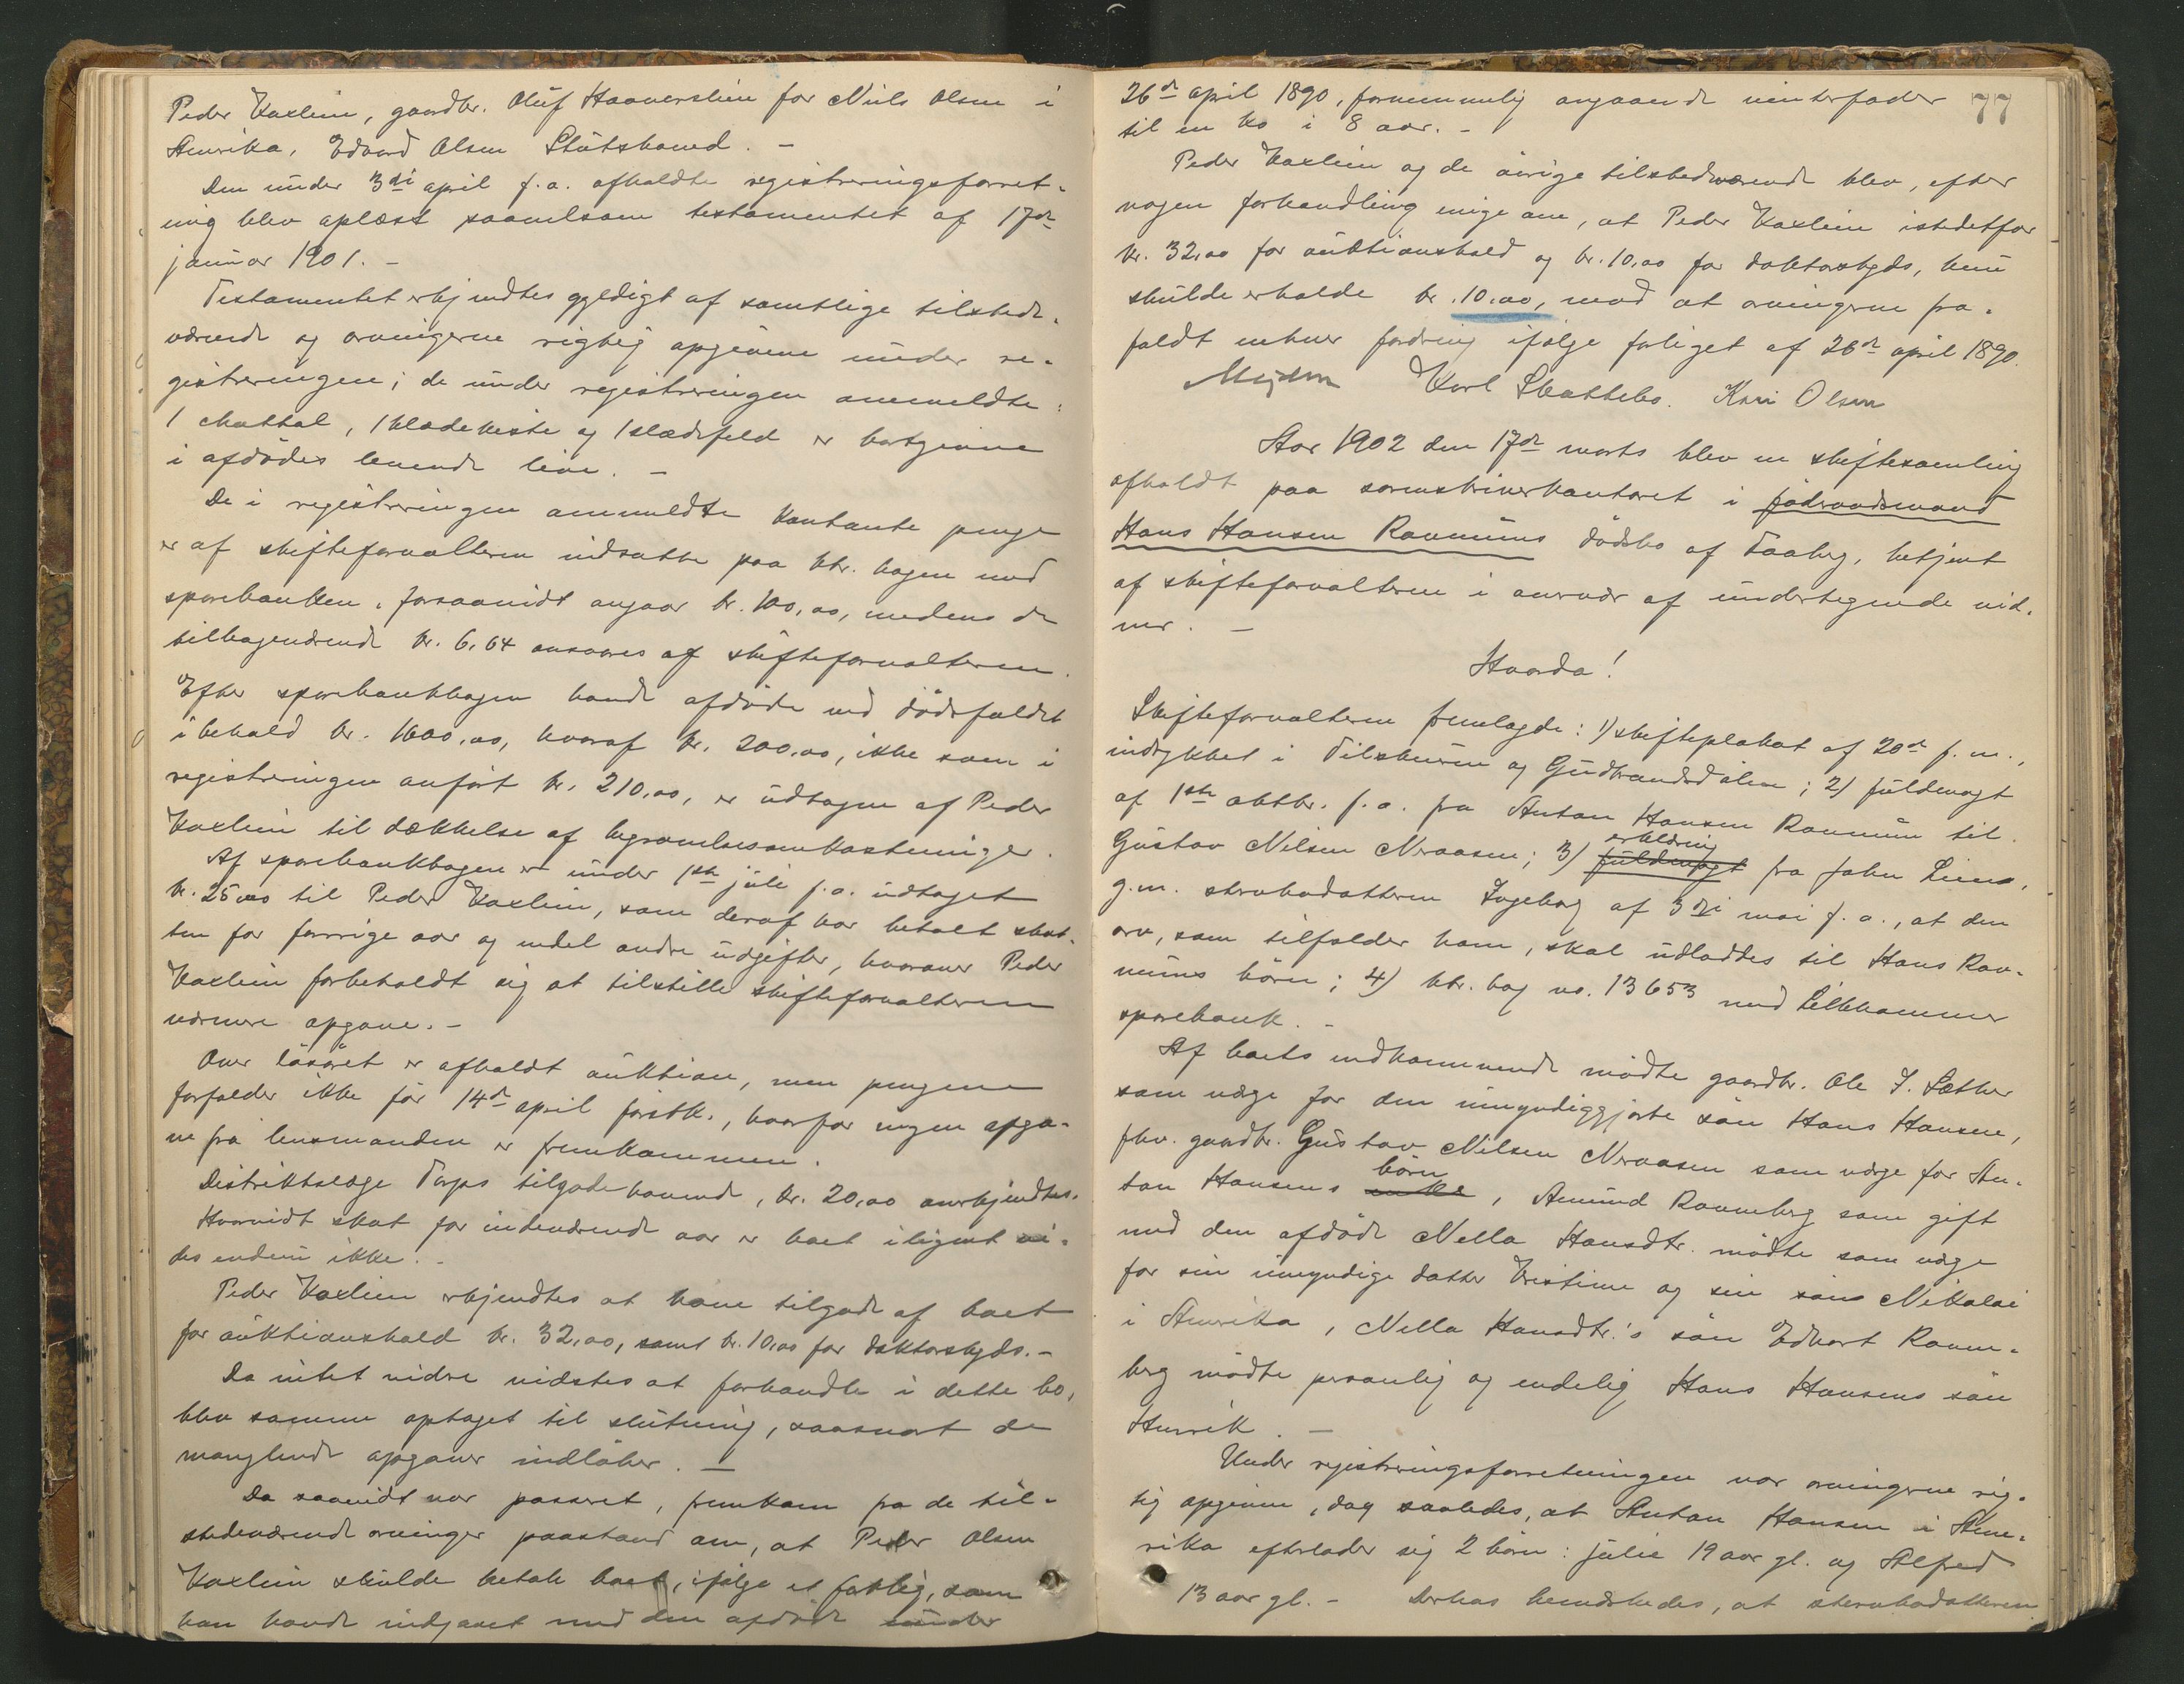 Peder Kaxlien, gaardbr. Oluf Haaverslien for Niels Olsen i
Amerika, Edvard Olsen Slutshaved. -
Den under 3die april f.a. afholdte registreringsforret-
ning blev oplæst saavelsom testamentet af 17de
januar 1901. -
Testamentet erkjendtes gyldigt af samtlige tilstede-
værende og arvingerne rigtig opgivne under re-
gistreringen; de under registreringen anmeldte:
1 chattol, 1 klædekiste og 1 slædefeld er bortgivne
i afdødes levende live. -
De i registreringen anmeldte kontante penge
er af skifteforvalteren indsatte paa ktr. bogen med
sparebanken, forsaavidt angaar kr. 100,00, medens de
tilbageværende kr. 6,64 ansvares af skifteforvalteren.
Efter sparebankbogen havde afdøde ved dødsfaldet
i behold kr. 1600,00, hvoraf kr. 200,00, ikke som i
registreringen anført kr. 210,00, er udtagen af Peder
Kaxlien til dækkelse af begravelsesomkostninger.
Af sparebankbogen er under 1ste juli f.a. udtaget
kr. 25,00 til Peder Kaxlien, som deraf har betalt skat-
ten for forrige aar og endel andre udgifter, hvorover Peder
Kaxlien forbeholdt sig at tilstille skifteforvalteren
nærmere opgave. -
Over løsøret er afholdt auktion, men pengene
forfalder ikke før 14de april førstk., hvorfor ingen opga-
ve fra lensmanden er fremkommen.
Distriktslæge Torps tilgodehavende, kr. 20,00 anerkjendtes.
Hvorvidt skat for indeværende aar er boet ilignet vi-
des endnu ikke. -
Peder Kaxlien erkjendtes at have tilgode af boet
for auktionshold kr. 32,00, samt kr. 10,00 for doktorskyds. -
Da intet videre vidstes at forhandle i dette bo,
blev samme optaget til slutning, saasnart de
manglende opgaver indløber. -
Da saavidt var passeret, fremkom fra de til-
stedeværende arvinger paastand om, at Peder Olsen
Kaxlien skulde betale boet, ifølge et forlig, som
han havde indgaaet med den afdøde under
77
26de april 1890, fornemmelig angaaende vinterfoder
til en ko i 8 aar. -
Peder Kaxlien og de øvrige tilstedeværende blev, efter
nogen forhandling enige om, at Peder Kaxlien istedetfor
kr. 32,00 for auktionshold og kr. 10,00 for doktorskyds, kun
skulde erholde kr. 10,00, mod at arvingerne fra-
faldt enhver fordring ifølge forliget af 26de april 1890.
Karl Skattebo. Kari Olsen
Aar 1902 den 17de marts blev en skiftesamling
afholdt paa sorenskriverkontoret i føderaadsmand
Hans Hansen Ravnums dødsbo af Faaberg, betjent
af skifteforvalteren i overvær af undertegnede vid-
ner. -
Hvorda!
Skifteforvalteren fremlagde: 1) skifteplakat af 20de f.m.,
indrykket i Tilskueren og Gudbrandsdølen; 2) fuldmagt
af 1ste oktbr. f.a. fra Anton Hansen Ravnum til
Gustav Nilsen Nervaasen; 3) fuldmagt erklæring fra John Lien,
g.m. stervbodatteren Ingeborg af 3die mai f.a., at den
arv, som tilfalder ham, skal udloddes til Hans Rav-
nums børn; 4) ktr. bog no. 13653 med Lillehammer
sparebank. -
Af boets vedkommende mødte gaardbr. Ole J. Sæther
som værge for den umyndiggjorte søn Hans Hansen,
fhv. gaardbr. Gustav Nilsen Nervaasen som værge for An-
ton Hansens enke børn, Amund Ravnberg som gift
med den afdøde Nella Hansdtr. mødte som værge
for sin umyndige datter Kristine og sin søn Nikolai
i Amerika, Nella Hansdtr.'s søn Edvart Ravn-
berg mødte personlig og endelig Hans Hansens søn
Henrik. -
Under registreringsforretningen var arvingerne rig-
tig opgivne, dog saaledes, at Anton Hansen i Ame-
rika efterlader sig 2 børn: Julie 19 aar gl. og Alfred
13 aar gl. - Derhos bemærkedes, at stervbodatteren